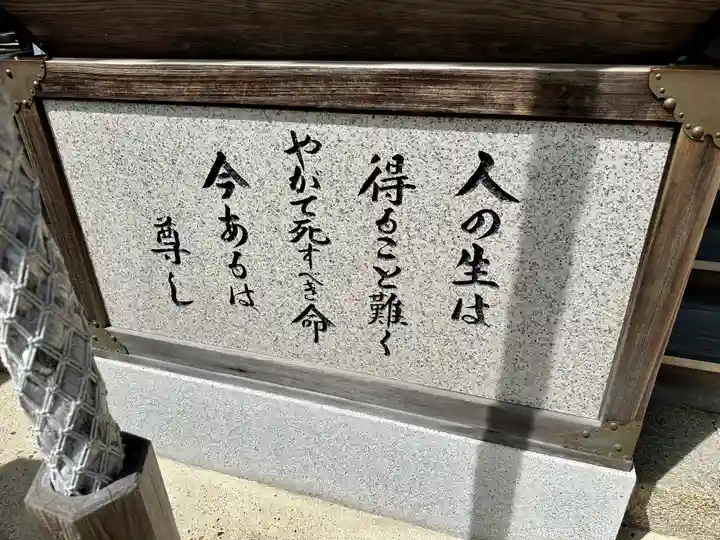 人の生は
得もこと難く
やがて死すべき命
今あもは
尊し